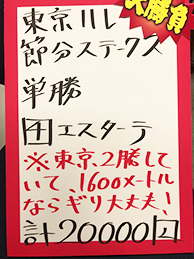 大勝負
東京11レ
節分ステークス
単勝
4 エスターテ
※東京2勝して
いて、1600メートル
ならギリ大丈夫!
計20000円